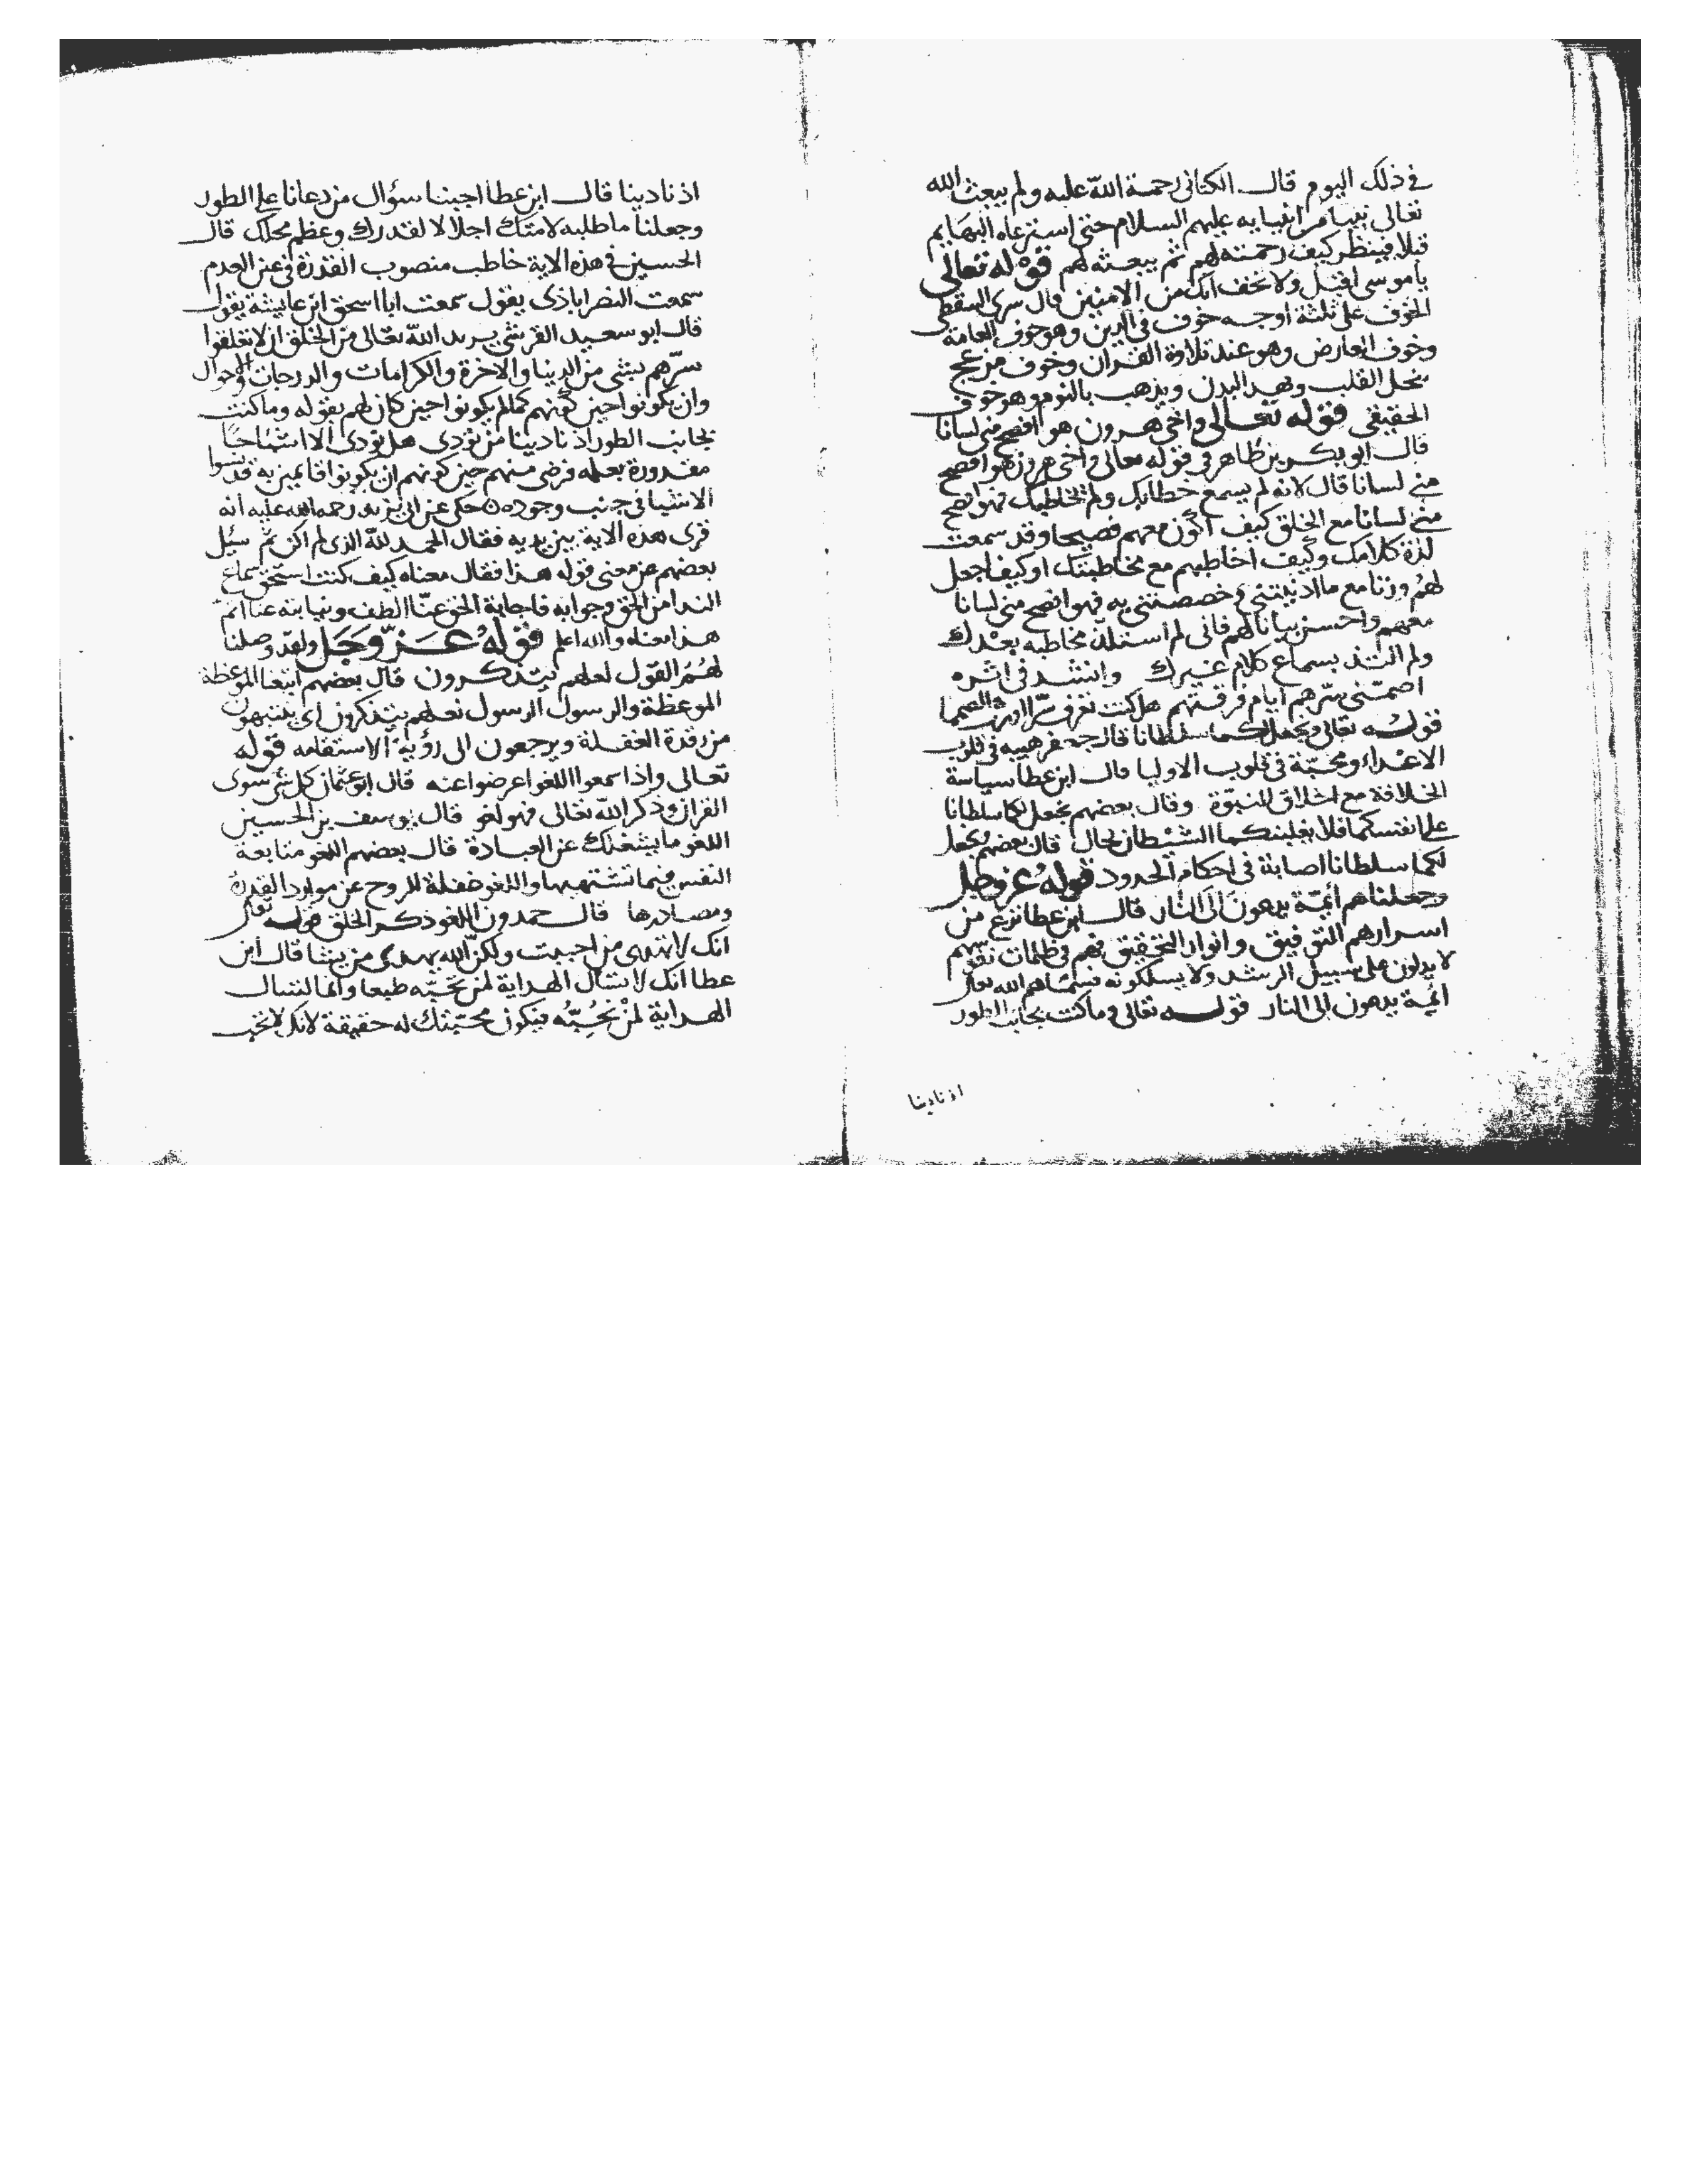 في ذلك اليوم قال الكتاني رحمة الله عليه ولم يبعث الله
تعالى نبيا من انبيايه عليهم السلام حتى استرعاه البهايم
قبلا فينظر كيف رحمته لهم ثم يبعثه لهم قوله تعالى
يا موسى اقبل ولا تخف انك من الامنين قال سري السقطي
الخوف على ثلثة اوجه خوف في الدين وهو خوف العامة
وخوف العارض وهو عند تلاوة القران وخوف مزعج
ينحل القلب ويهد البدن ويذهب بالنوم وهو خوف
الحقيقي قوله تعالى واخي هرون هو افصح مني لسانا
قال ابو بكر بن طاهر في قوله تعالى واخي هرون هو افصح
مني لسانا قال لانه لم يسمع خطابك ولم تخاطبك فهو افصح
مني لسانا مع الخلق كيف اكون معهم فصيحا وقد سمعت
لذة كلامك وكيف اخاطبهم مع مخاطبتك او كيف اجعل
لهم وزنا مع ما ادنيتني وخصصتني به فهو افصح مني لسانا
معهم واحسن بيانا لهم فاني لم استلذ مخاطبه بعدك
ولم التذ بسماع كلام غيرك وانشد في اثره
اصمتني سرهم ايام فرقتهم هل كنت تعرف سرا يورث الصمما
قوله تعالى ونجعل لكما سلطانا قال جعفر هيبه في قلوب
الاعداء ومحبة في قلوب الاوليا قال ابن عطا سياسة
الخلافة مع اخلاق النبوة وقال بعضهم نجعل لكما سلطانا
على انفسكما فلا يغلبنكما الشيطان بحال قال بعضهم نجعل
لكما سلطانا اصابة في احكام الحدود قوله عز وجل
وجعلناهم أئمة يدعون الى النار قال ابن عطا نزع من
اسرارهم التوفيق وانوار التحقيق فهم في ظلمات نفوسهم
لا يدلون على سبيل الرشد ولا يسلكونه فسماهم الله تعالى
ائمة يدعون الى النار قوله تعالى وما كنت بجانب الطور
اذ نادينا
اذ نادينا قال ابن عطا اجبنا سؤال من دعانا على الطور
وجعلنا ما طلبه لامتك اجلالا لقدرك وعظم محلك قال
الحسين في هذه الاية خاطب منصوب القدرة في عين العدم
سمعت النصراباذى يقول سمعت ابا اسحق ابن عايشة يقول
قال ابو سعيد القرشي يريد الله تعالى من الخلق ان لا تعلقوا
سرهم بشي من الدنيا والاخرة والكرامات والدرجات والاحوال
وان يكونوا حين كونهم كما لم يكونوا حين كان لهم بقوله وما كنت
بجانب الطور اذ نادينا من نودى هل نودى الا
مقدورة بعلمه فرضي منهم حين كونهم ان يكونوا قايمين به قد نسوا
الاشيا في جنب وجوده حكي عن ابي يزيد رحمه الله عليه انه
قرى هذه الاية بين يديه فقال الحمد لله الذي لم اكن ثم سئل
بعضهم عن معنى قوله هذا فقال معناه كيف كنت استحق سماع
الندا من الحق وجوابه فاجابة الحق عنا الطف ونيابته عنا اتم
هذا معناه والله اعلم قوله عز وجل ولقد وصلنا
لهم القول لعلهم يتذكرون قال بعضهم اتبعنا الموعظة
الموعظة والرسول الرسول لعلهم يتذكرون اى ينتبهون
من رقدة الغفلة ويرجعون الى رؤية الاستقامه قوله
تعالى واذا سمعوا اللغو اعرضوا عنه قال ابو عثمان كل شي سوى
القران وذكر الله تعالى فهو لغو قال يوسف بن الحسين
اللغو ما يشغلك عن العبادة قال بعضهم اللغو متابعة
النفس فيما تشتهيها واللغو غفلة للروح عن موارد القدرة
ومصادرها قال حمدون اللغو ذكر الخلق قوله تعالى
انك لا تهدى من احببت ولكن الله يهدى من يشا قال ابن
عطا انك لا تسال الهداية لمن تحبه طبعا وانما لتسال
الهداية لمن نحبه فيكون محبتك له حقيقة لانك لا تحب